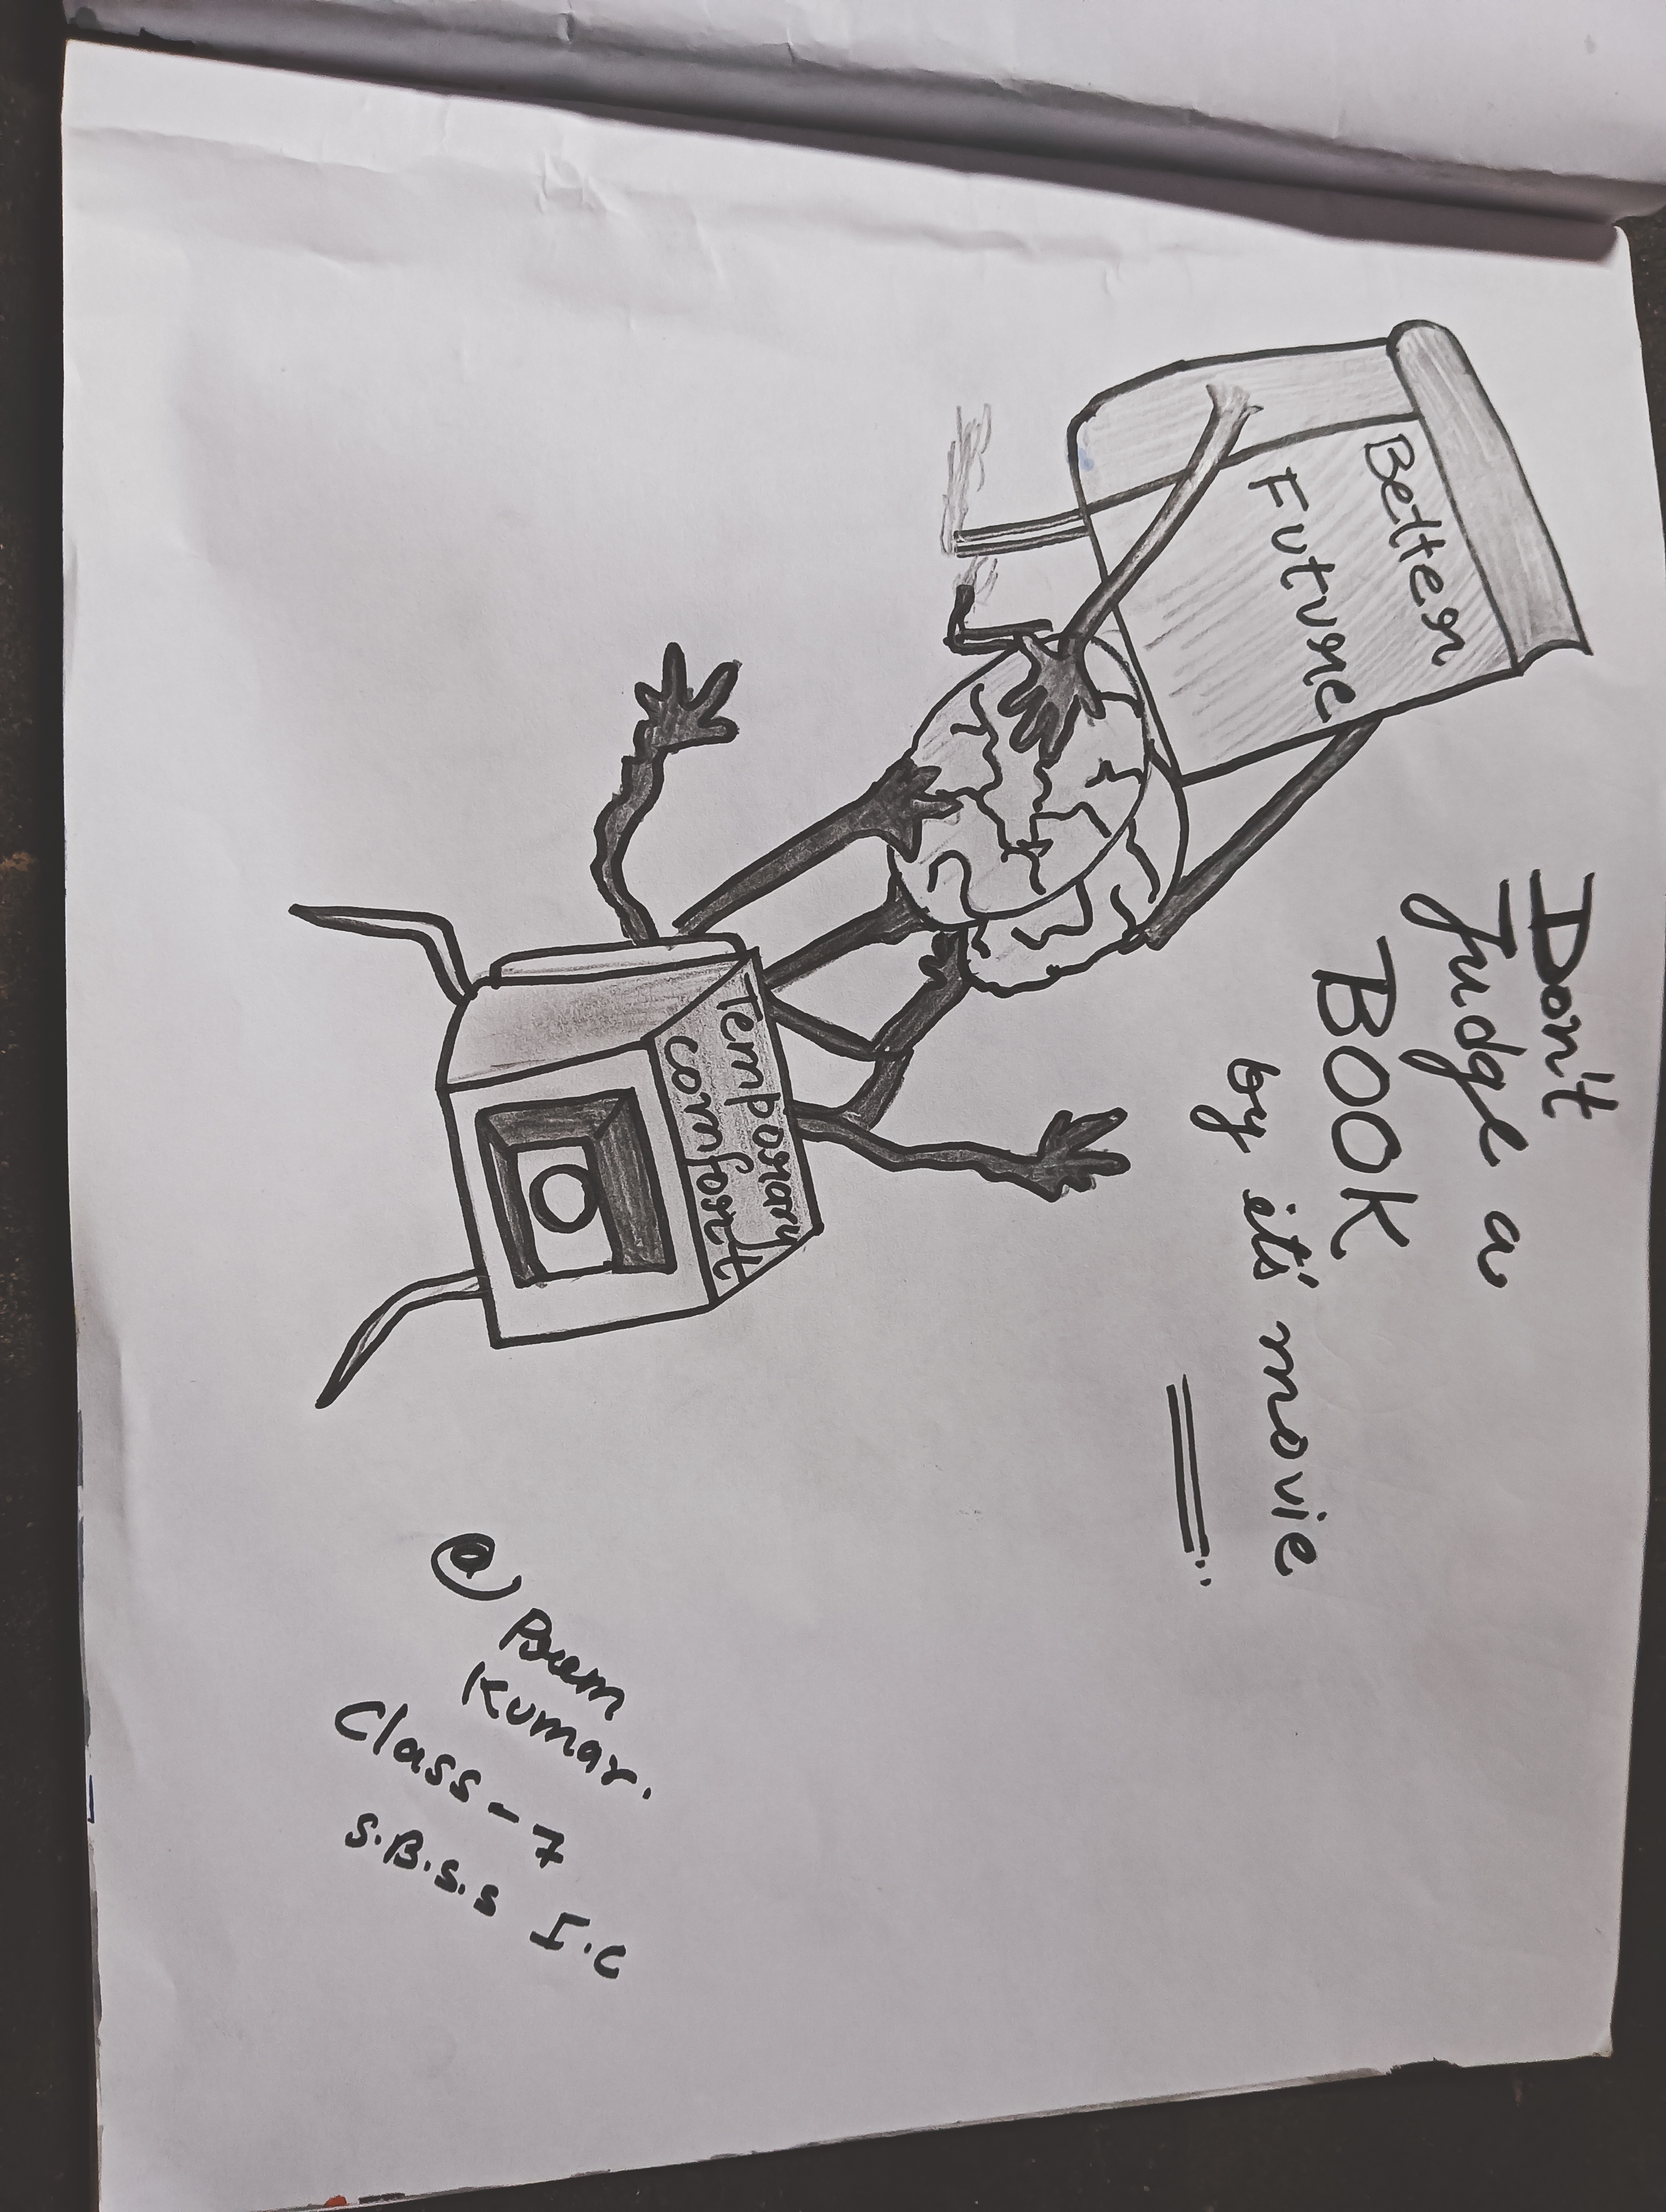 Don't
Judge a
BOOK
by its' movie
Better
Future
Temporary
comfort
@ Prem
Kumar.
Class - 7
S.B.S.S I.C